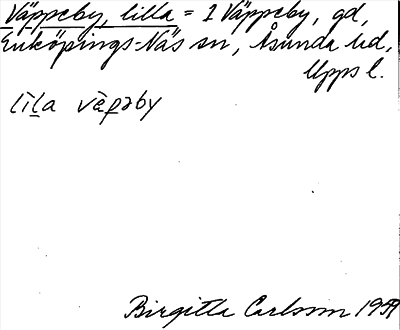 Väppeby, lilla = 1 Väppeby, gd,
Enköpings-Näs sn, Åsunda hd,
Upps l.
lila väpəby
Birgitta Carlsson 1959